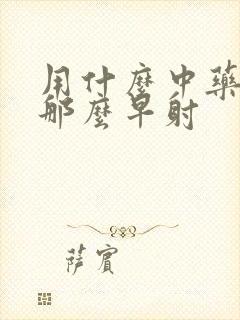 用什麼中藥
那麼早射
薩賓